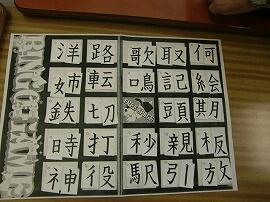 BINGO GAME
洋 路 歌 取 何
姉 転 鳴 記 絵
鉄 切 頭 期
時 打 秒 親 板
神 役 駅 引 放